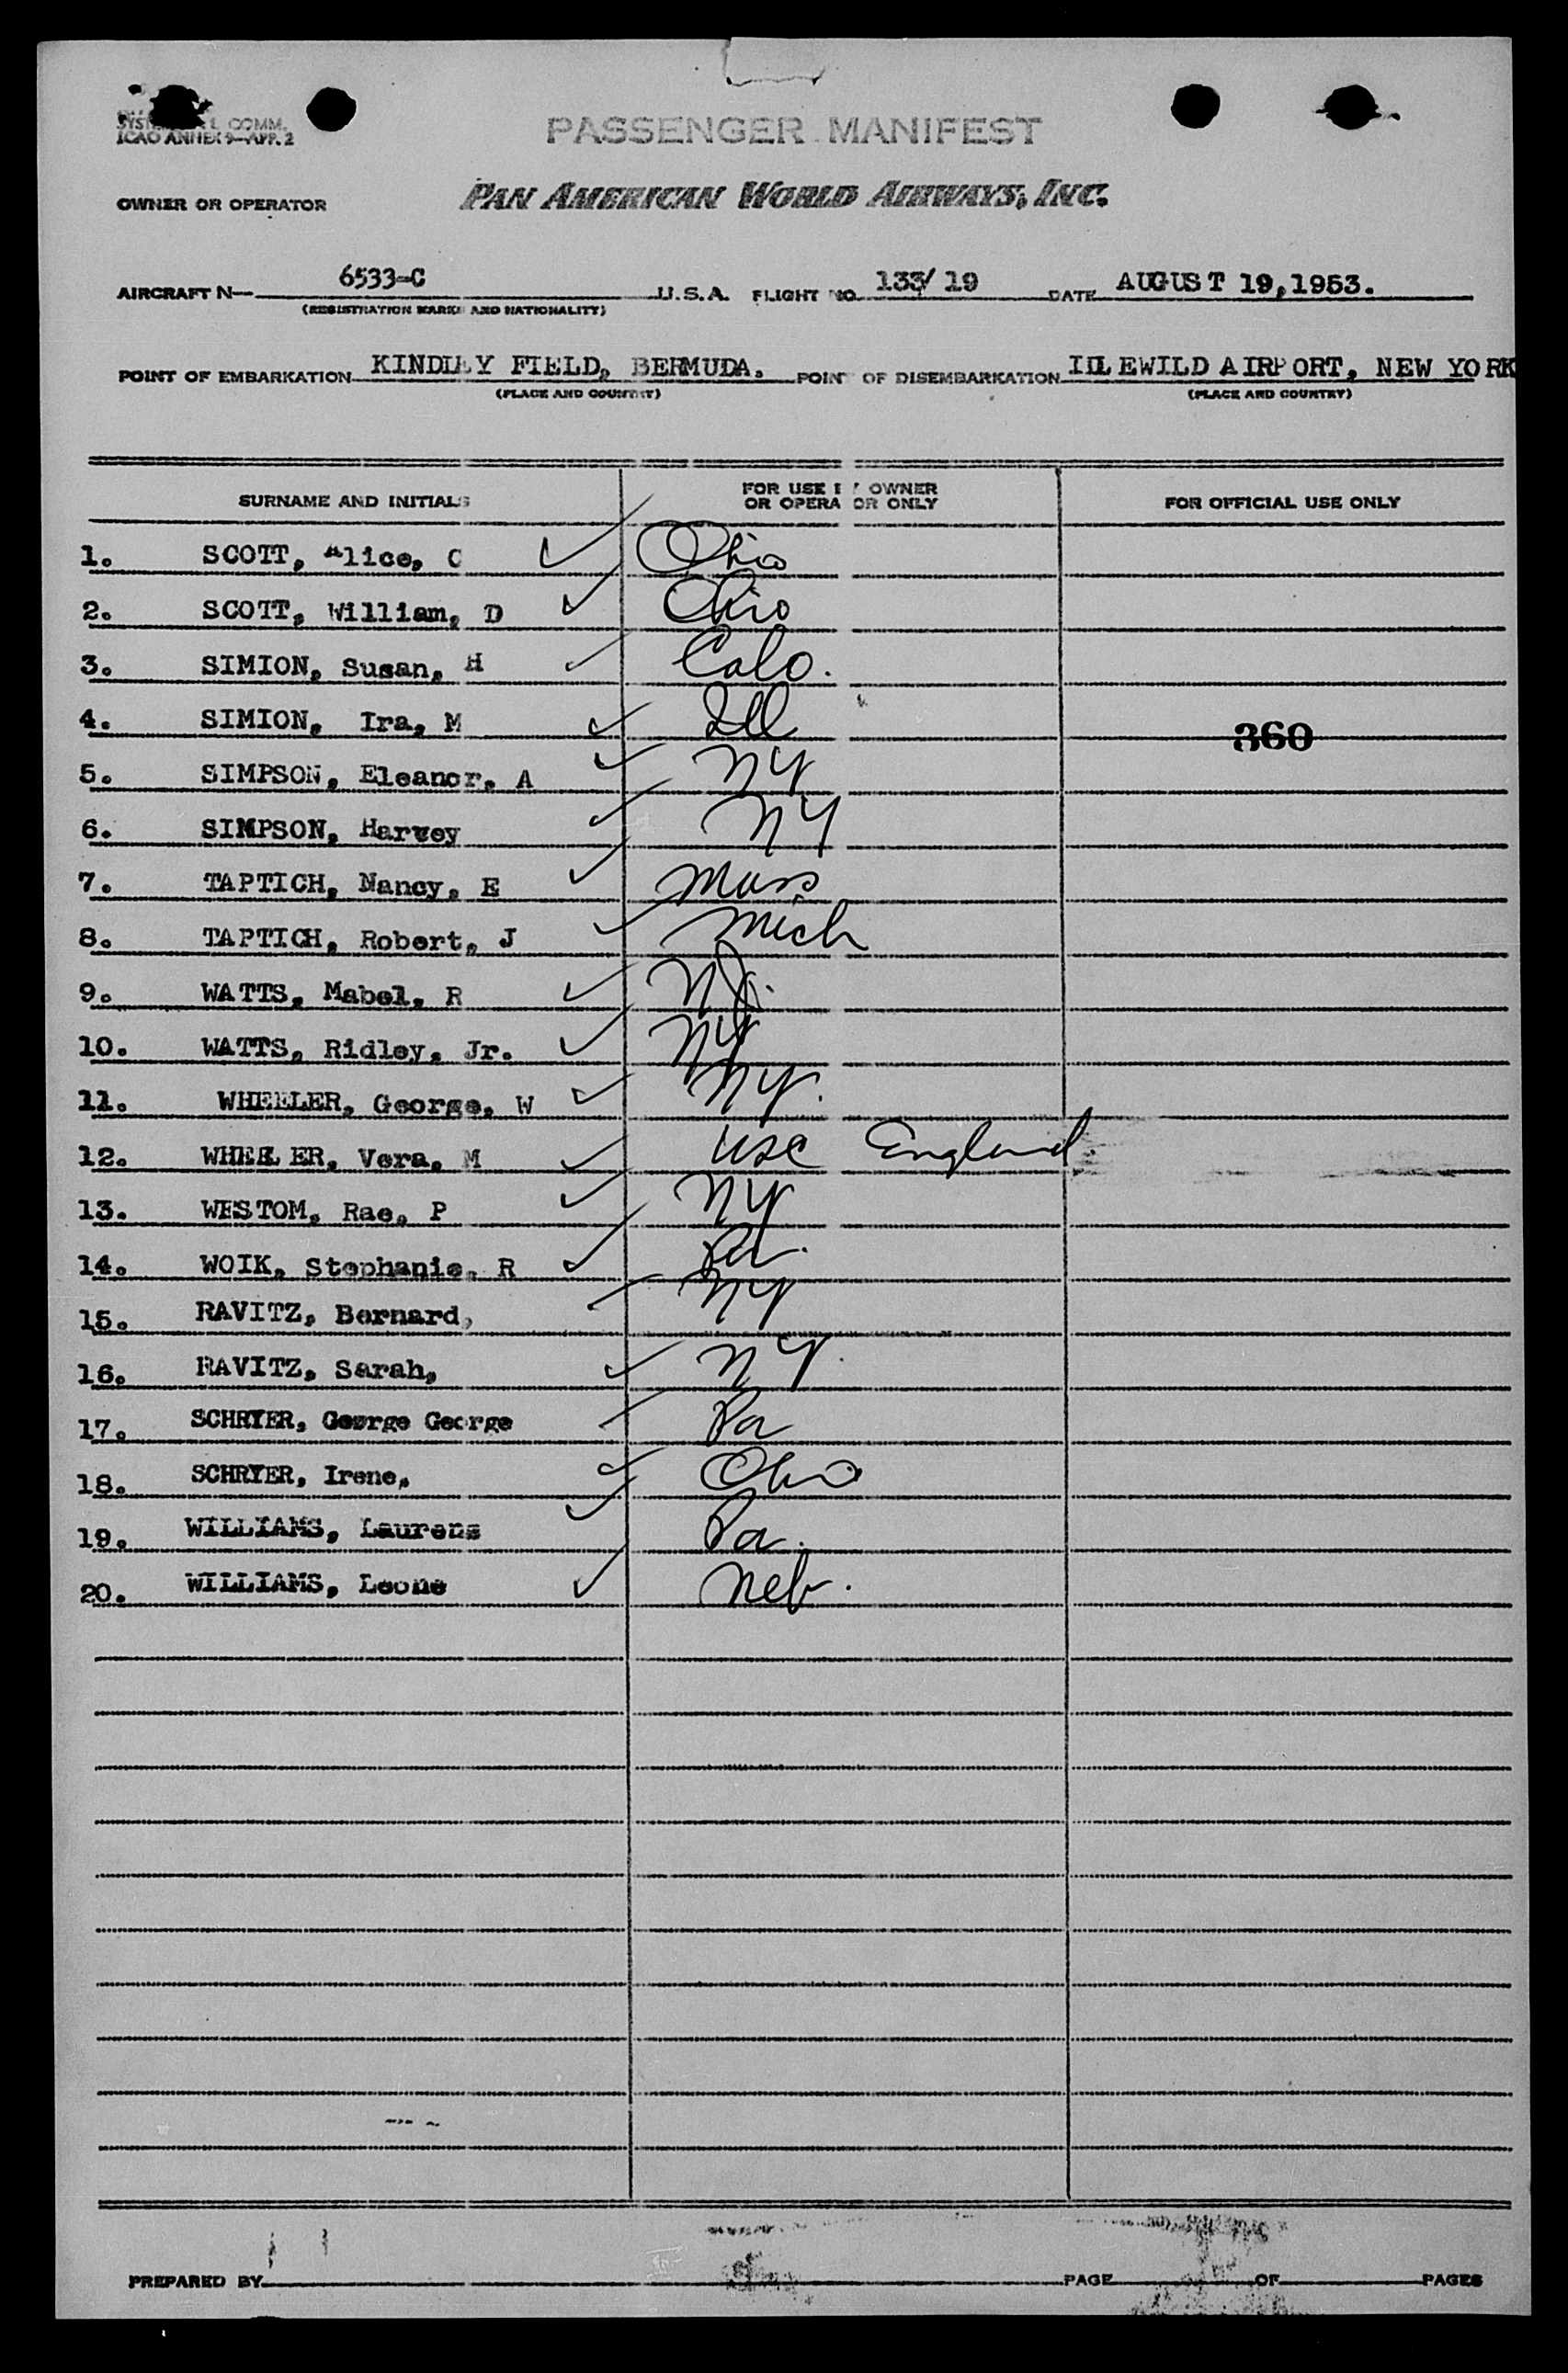 SYST COMM.
ICAO ANNEX 9—APP. 2
PASSENGER MANIFEST
OWNER OR OPERATOR PAN AMERICAN WORLD AIRWAYS, INC.
AIRCRAFT N— 6533-C U.S.A. FLIGHT NO. 133/ 19 DATE AUGUST 19,1953.
(REGISTRATION MARKS AND NATIONALITY)
POINT OF EMBARKATION KINDLEY FIELD, BERMUDA. POINT OF DISEMBARKATION IDLEWILD AIRPORT, NEW YORK
(PLACE AND COUNTRY) (PLACE AND COUNTRY)
SURNAME AND INITIALS FOR USE BY OWNER OR OPERATOR ONLY FOR OFFICIAL USE ONLY
1. SCOTT, Alice, C ✓ Ohio
2. SCOTT, William, D ✓ Ohio
3. SIMION, Susan, H ✓ Colo.
4. SIMION, Ira, M ✓ Ill 360
5. SIMPSON, Eleanor, A ✓ NY
6. SIMPSON, Harvey ✓ NY
7. TAPTICH, Nancy, E ✓ Mass
8. TAPTICH, Robert, J ✓ Mich
9. WATTS, Mabel, R ✓ NJ.
10. WATTS, Ridley, Jr. ✓ NY
11. WHEELER, George, W ✓ NY.
12. WHEELER, Vera, M ✓ USC England
13. WESTOM, Rae, P ✓ NY
14. WOIK, Stephanie, R ✓ Pa.
15. RAVITZ, Bernard, ✓ NY
16. RAVITZ, Sarah, ✓ NY.
17. SCHRYER, George George ✓ Pa
18. SCHRYER, Irene, ✓ Ohio
19. WILLIAMS, Laurens ✓ Pa.
20. WILLIAMS, Leone ✓ Neb.
PREPARED BY PAGE OF PAGES